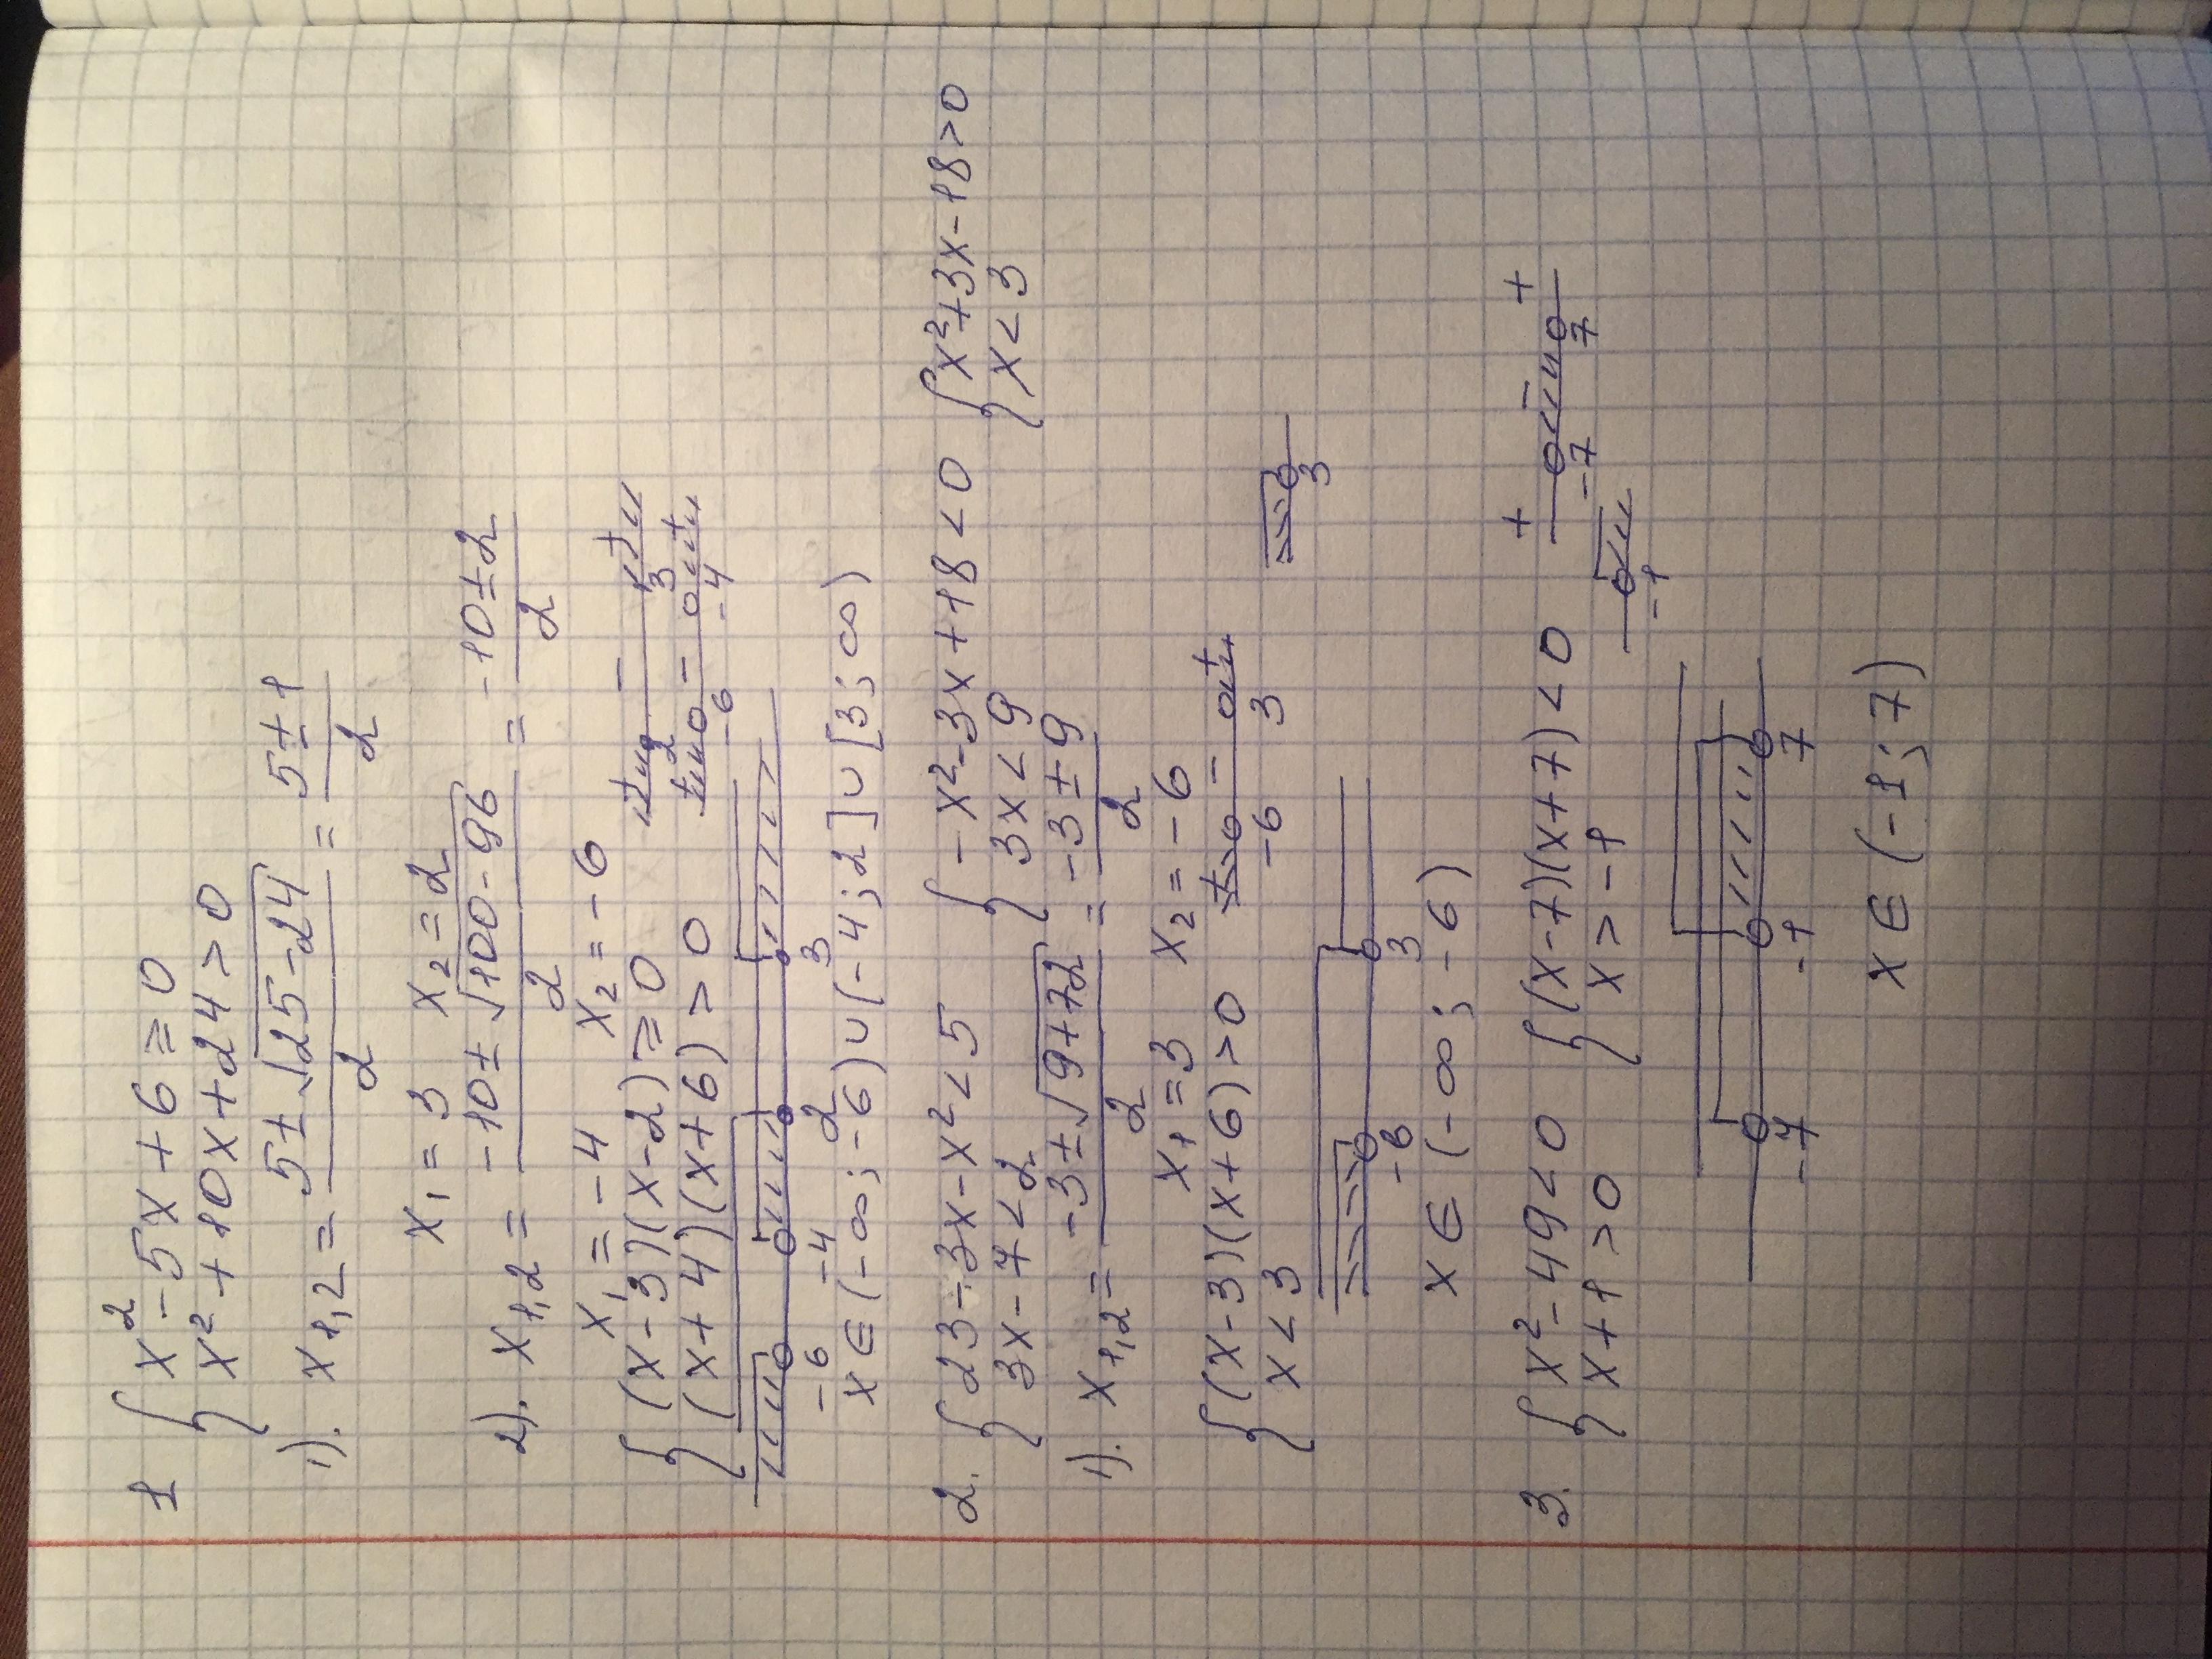 1 { x² - 5x + 6 ≥ 0
x² + 10x + 24 > 0
1). x1,2 = (5 ± √(25-24))/2 = (5 ± 1)/2
x1 = 3 x2 = 2
2). x1,2 = (-10 ± √(100-96))/2 = (-10 ± 2)/2
x1 = -4 x2 = -6
{ (x-3)(x-2) ≥ 0 + 2 - 3 +
(x+4)(x+6) > 0 + -6 - -4 +
-6 -4 2 3
x ∈ (-∞; -6) ∪ (-4; 2] ∪ [3; ∞)
2. { 23 - 3x - x² < 5 { -x² - 3x + 18 < 0 { x² + 3x - 18 > 0
3x - 7 < 2 3x < 9 x < 3
1). x1,2 = (-3 ± √(9+72))/2 = (-3 ± 9)/2
x1 = 3 x2 = -6
{ (x-3)(x+6) > 0 + -6 - 3 +
x < 3 3
-6 3
x ∈ (-∞; -6)
3. { x² - 49 < 0 { (x-7)(x+7) < 0 + -7 - 7 +
x + 1 > 0 x > -1 -1
-7 -1 7
x ∈ (-1; 7)